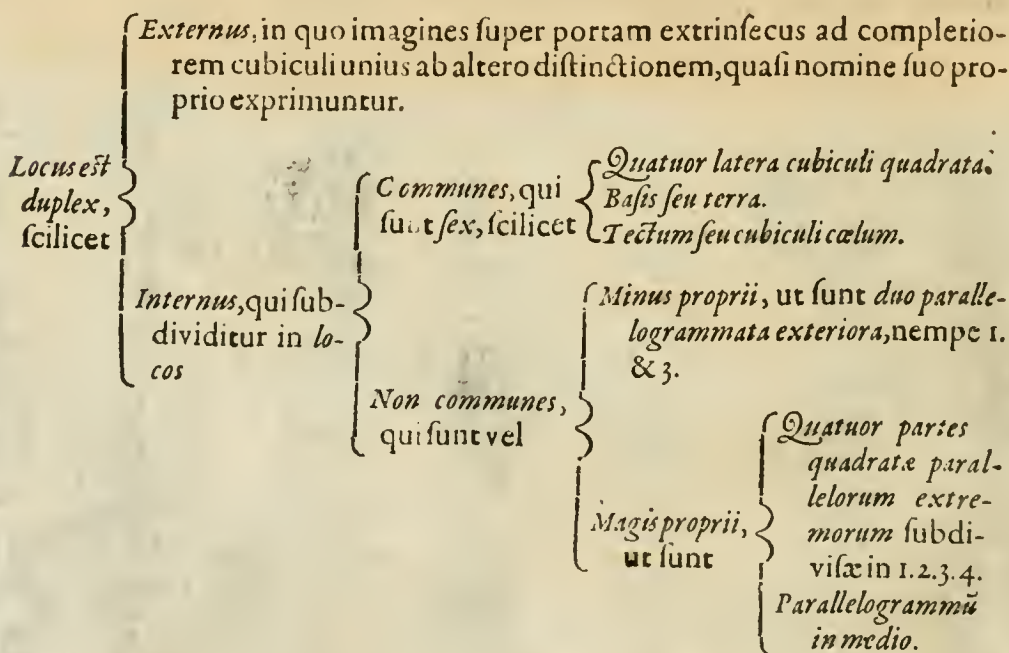 Externus, in quo imagines ſuper portam extrinſecus ad completio-
rem cubiculi unius ab altero diſtinctionem, quaſi nomine ſuo pro-
prio exprimuntur.
Locus eſt
duplex,
ſcilicet
Internus, qui ſub-
dividitur in lo-
cos
Communes, qui
ſunt ſex, ſcilicet
Quatuor latera cubiculi quadrata.
Baſis ſeu terra.
Tectum ſeu cubiculi cœlum.
Non communes,
qui ſunt vel
Minus proprii, ut ſunt duo paralle-
logrammata exteriora, nempe 1.
& 3.
Magis proprii,
ut ſunt
Quatuor partes
quadratæ paral-
lelorum extre-
morum ſubdi-
viſæ in 1.2.3.4.
Parallelogrammū
in medio.